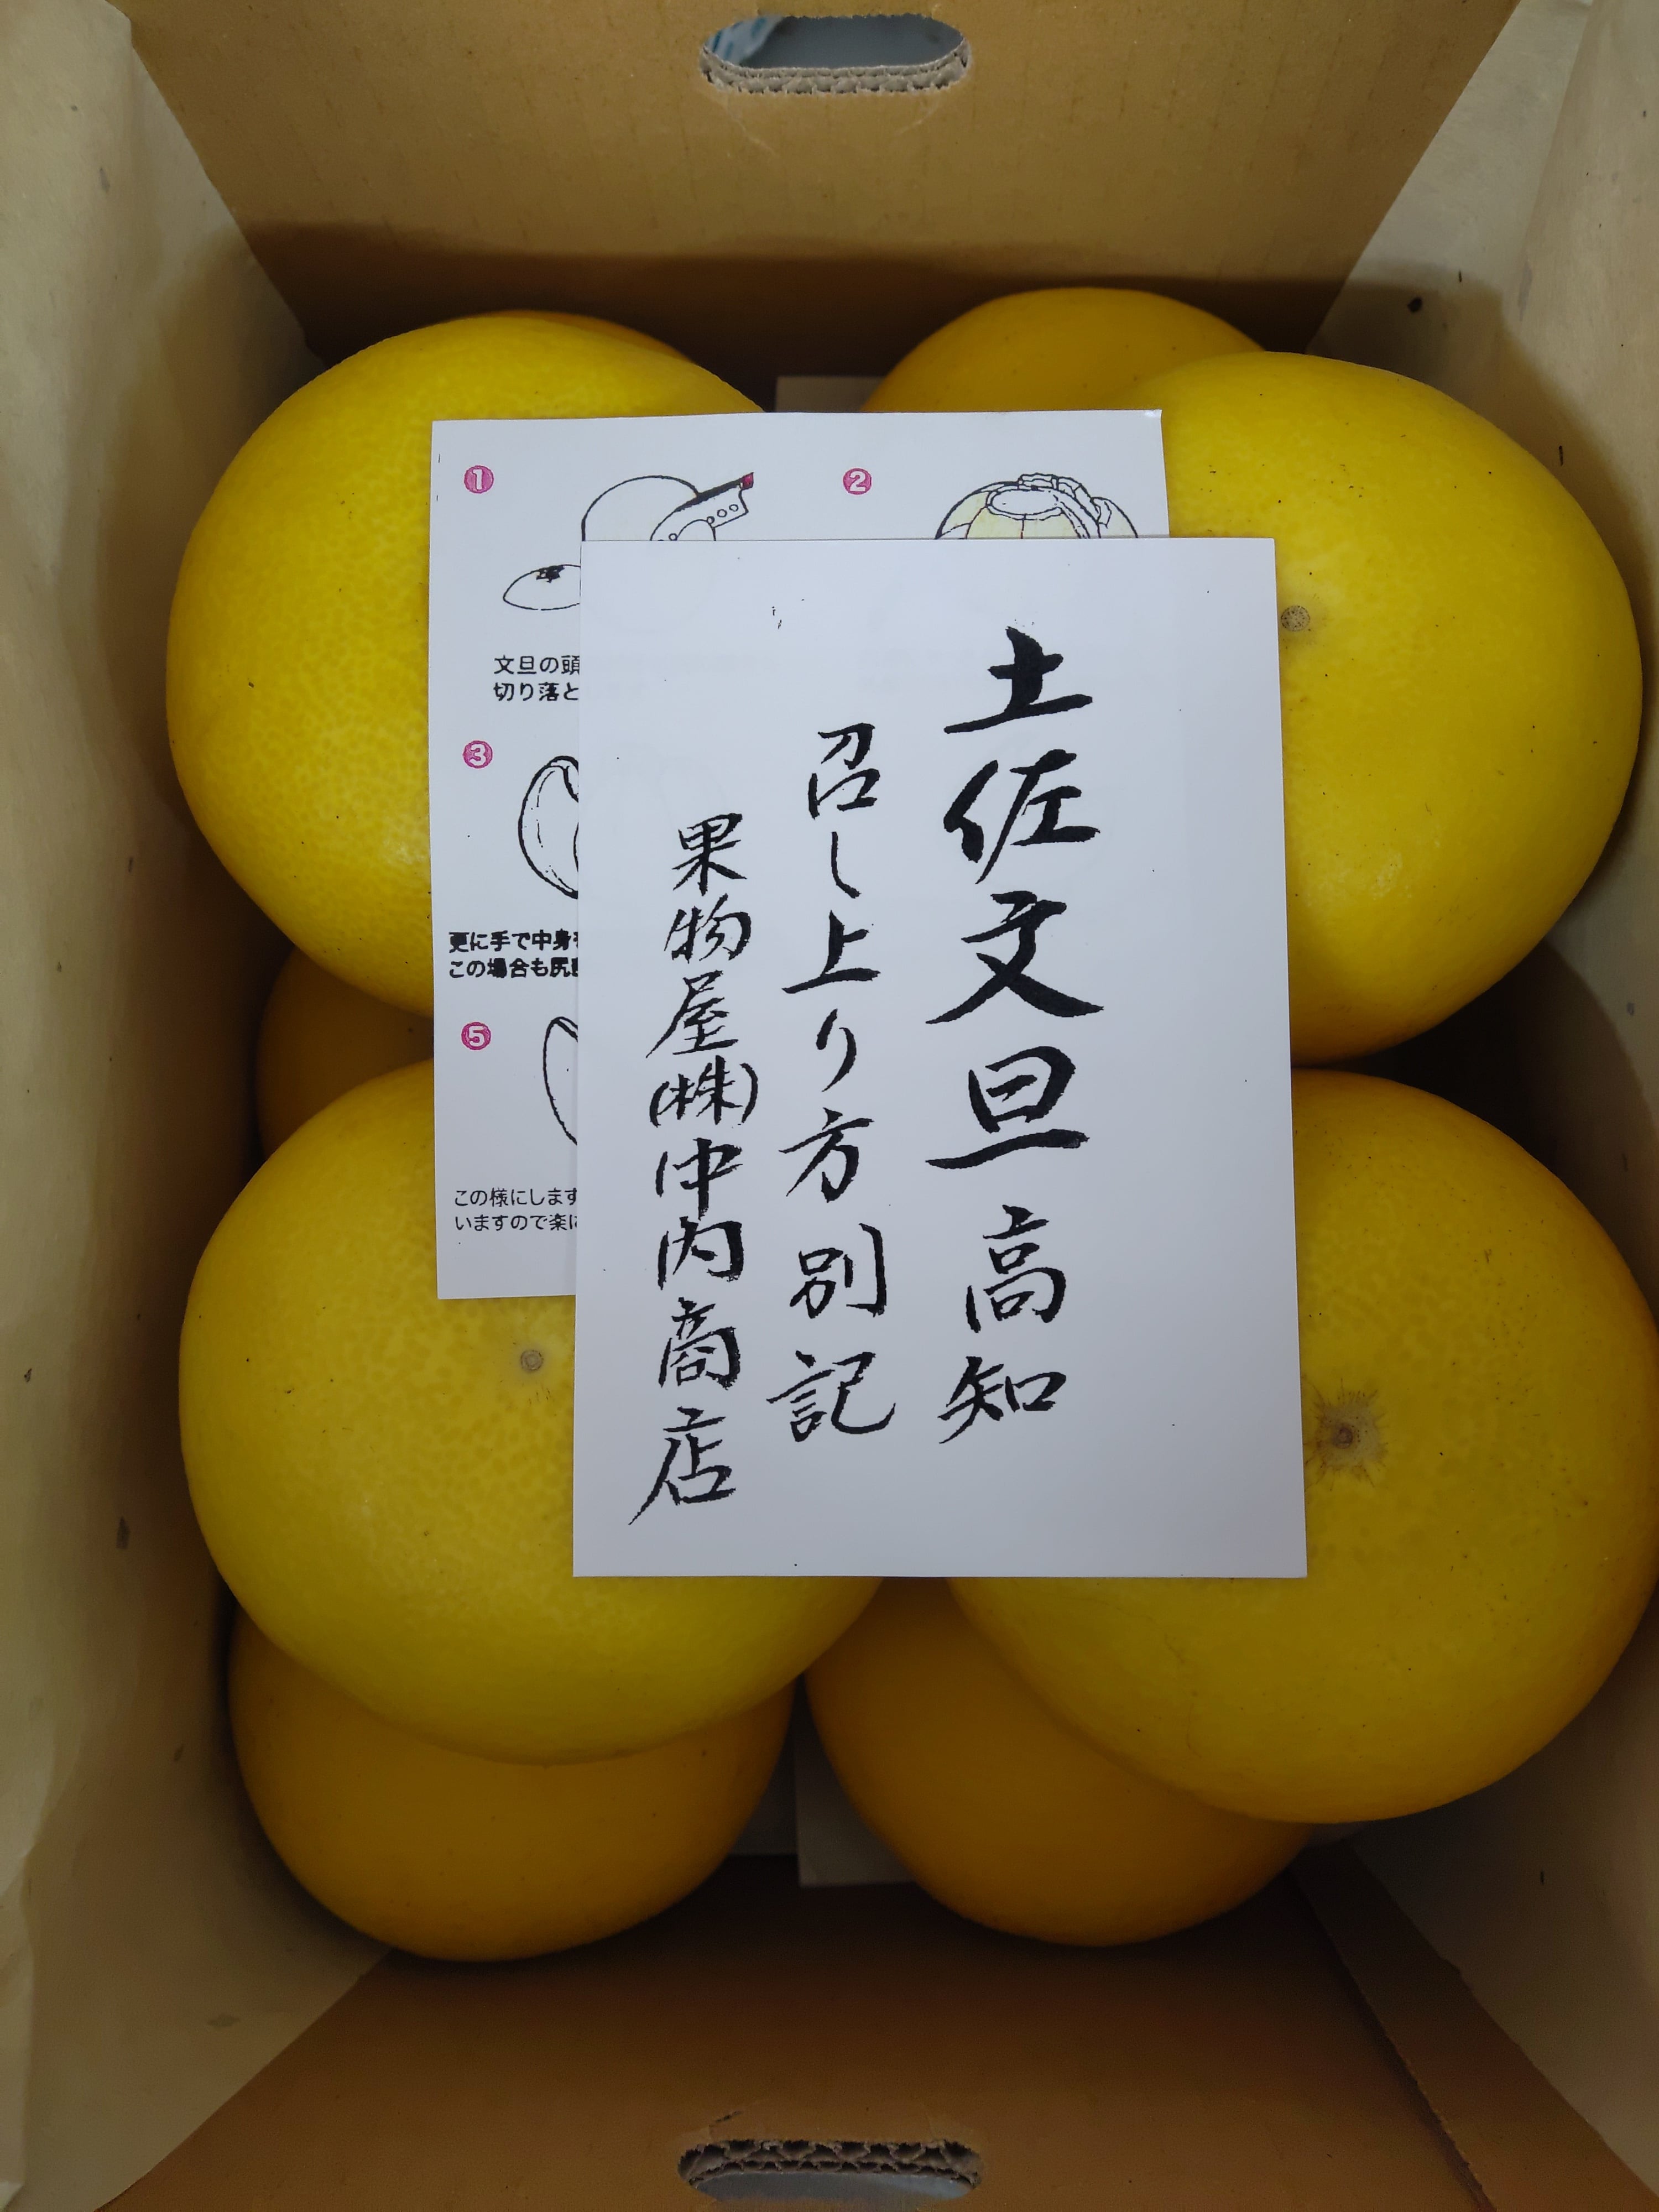 土佐文旦 高知
召し上り方別記
果物屋(株)中内商店
1
2
文旦の頭
切り落と
3
更に手で中身
この場合も尻
5
この様にします
いますので楽に